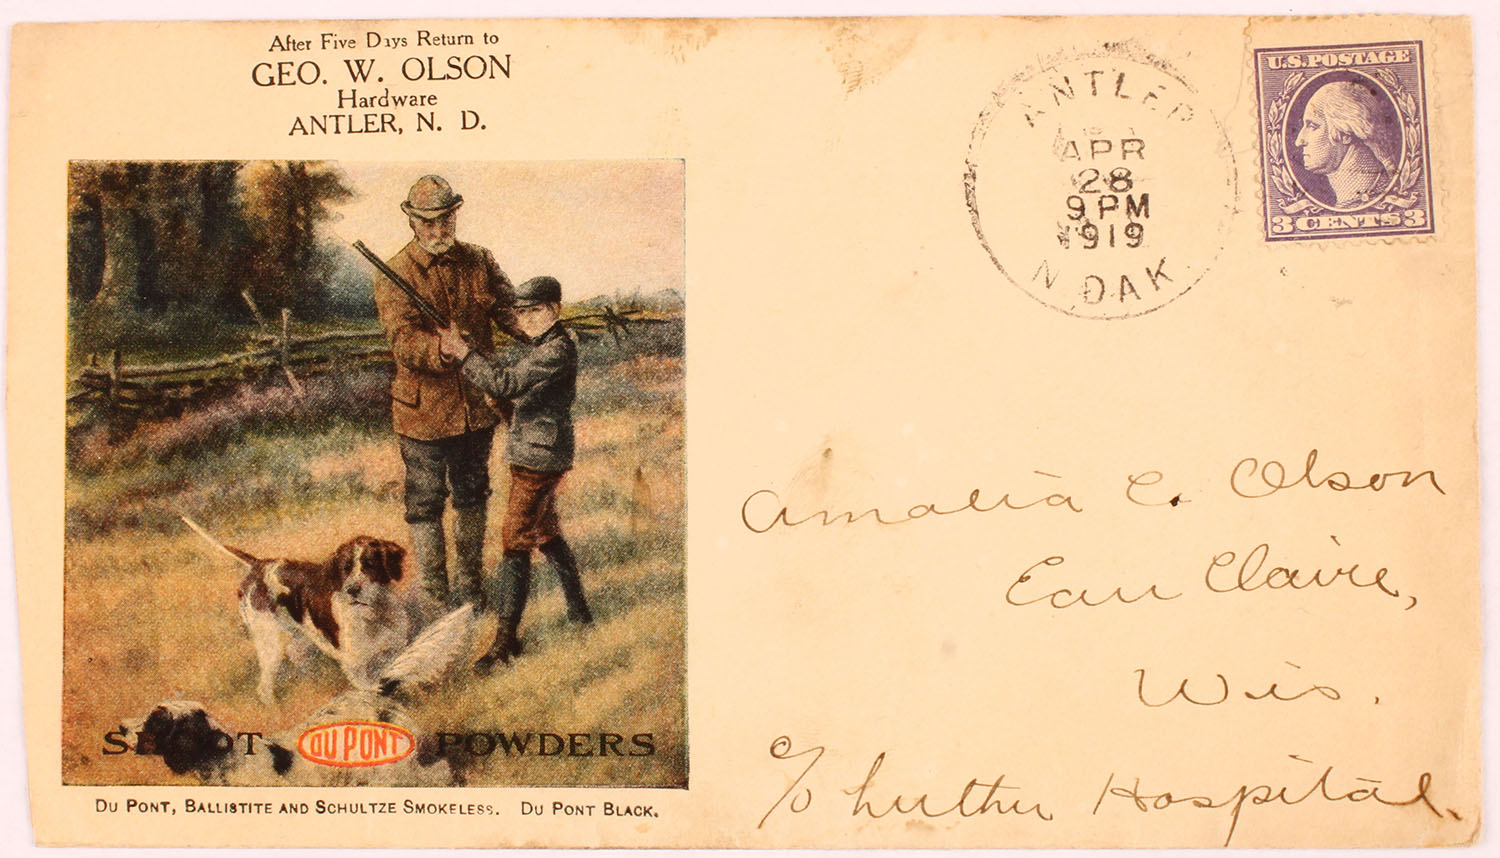 After Five Days Return to
GEO. W. OLSON
Hardware
ANTLER, N. D.
ANTLER
APR
28
9 PM
1919
N. DAK.
U.S. POSTAGE
3 CENTS 3
Amalia C. Olson
Eau Claire,
Wis.
c/o Luther Hospital.
SHOOT DU PONT POWDERS
DU PONT, BALLISTITE AND SCHULTZE SMOKELESS. DU PONT BLACK.